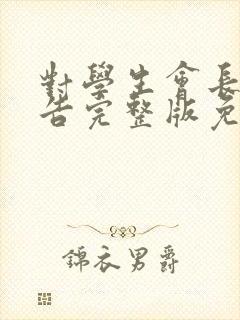 對學生會長
告完整版免
錦衣男爵